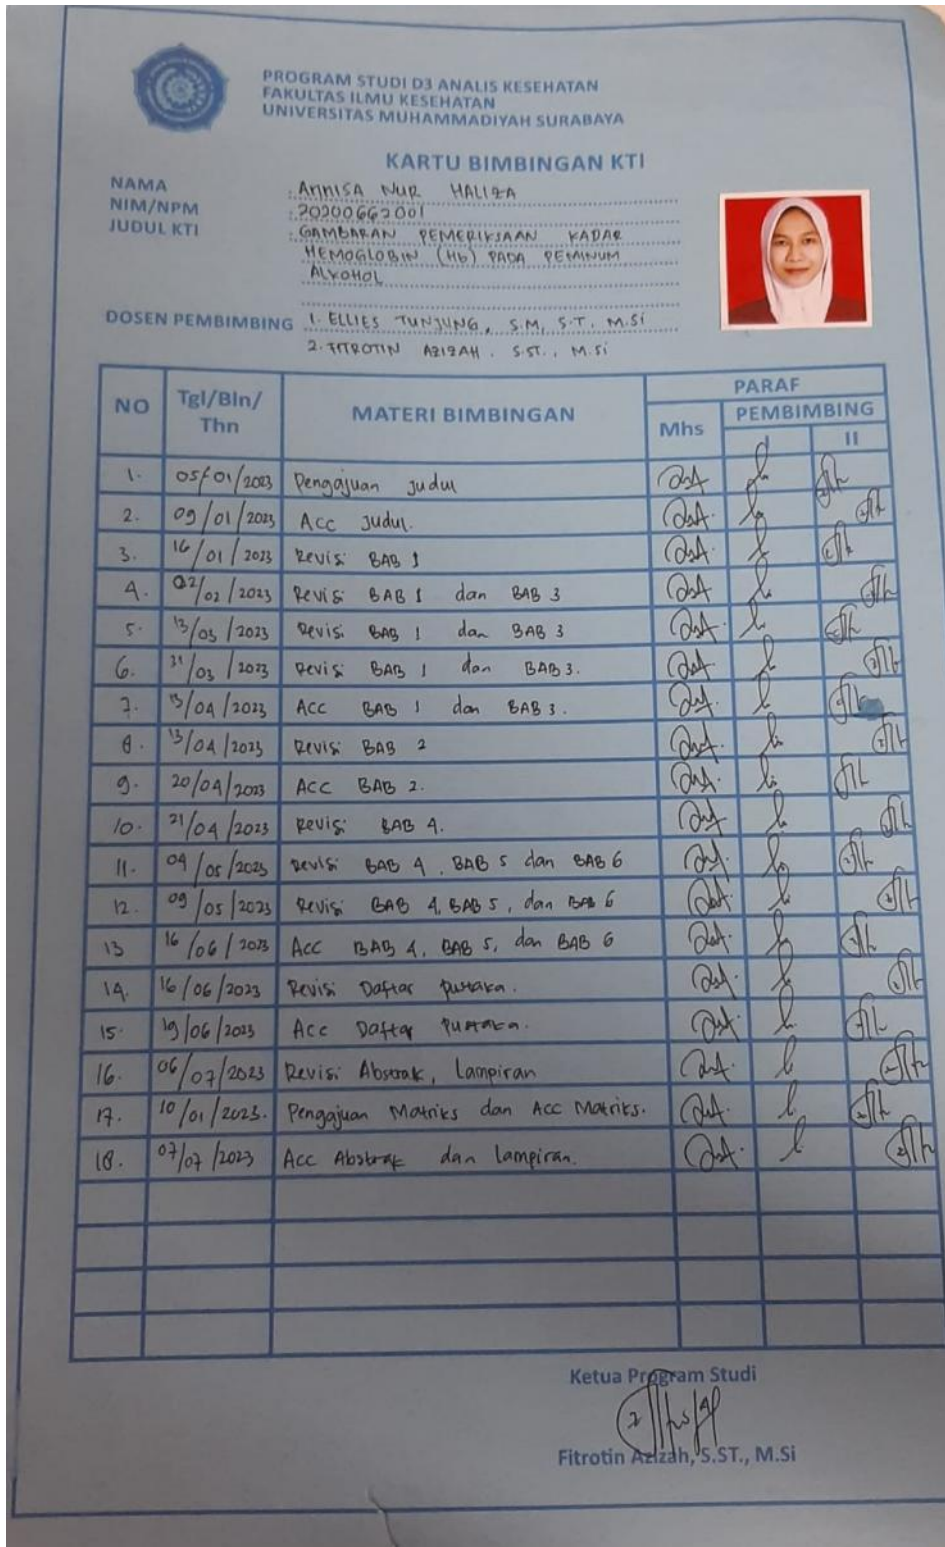 PROGRAM STUDI D3 ANALIS KESEHATAN
FAKULTAS ILMU KESEHATAN
UNIVERSITAS MUHAMMADIYAH SURABAYA
KARTU BIMBINGAN KTI
NAMA : ANNISA NUR HALIZA
NIM/NPM : 20200662001
JUDUL KTI : GAMBARAN PEMERIKSAAN KADAR
HEMOGLOBIN (Hb) PADA PEMINUM
ALKOHOL
DOSEN PEMBIMBING 1. ELLIES TUNJUNG, S.M, S.T, M.Si
2. FITROTIN AZIZAH. S.ST., M.Si
NO Tgl/Bln/Thn MATERI BIMBINGAN PARAF
Mhs PEMBIMBING
I II
1. 05/01/2023 Pengajuan judul
2. 09/01/2023 Acc judul.
3. 16/01/2023 Revisi BAB 1
4. 02/02/2023 Revisi BAB 1 dan BAB 3
5. 13/03/2023 Revisi BAB 1 dan BAB 3
6. 31/03/2023 Revisi BAB 1 dan BAB 3.
7. 13/04/2023 ACC BAB 1 dan BAB 3.
8. 13/04/2023 Revisi BAB 2
9. 20/04/2023 ACC BAB 2.
10. 21/04/2023 Revisi BAB 4.
11. 04/05/2023 Revisi BAB 4, BAB 5 dan BAB 6
12. 09/05/2023 Revisi BAB 4, BAB 5, dan BAB 6
13 16/06/2023 Acc BAB 4, BAB 5, dan BAB 6
14. 16/06/2023 Revisi Daftar Pustaka.
15. 19/06/2023 Acc Daftar Pustaka.
16. 06/07/2023 Revisi Abstrak, Lampiran
17. 10/01/2023. Pengajuan Matriks dan Acc Matriks.
18. 07/07/2023 Acc Abstrak dan lampiran.
Ketua Program Studi
Fitrotin Azizah, S.ST., M.Si